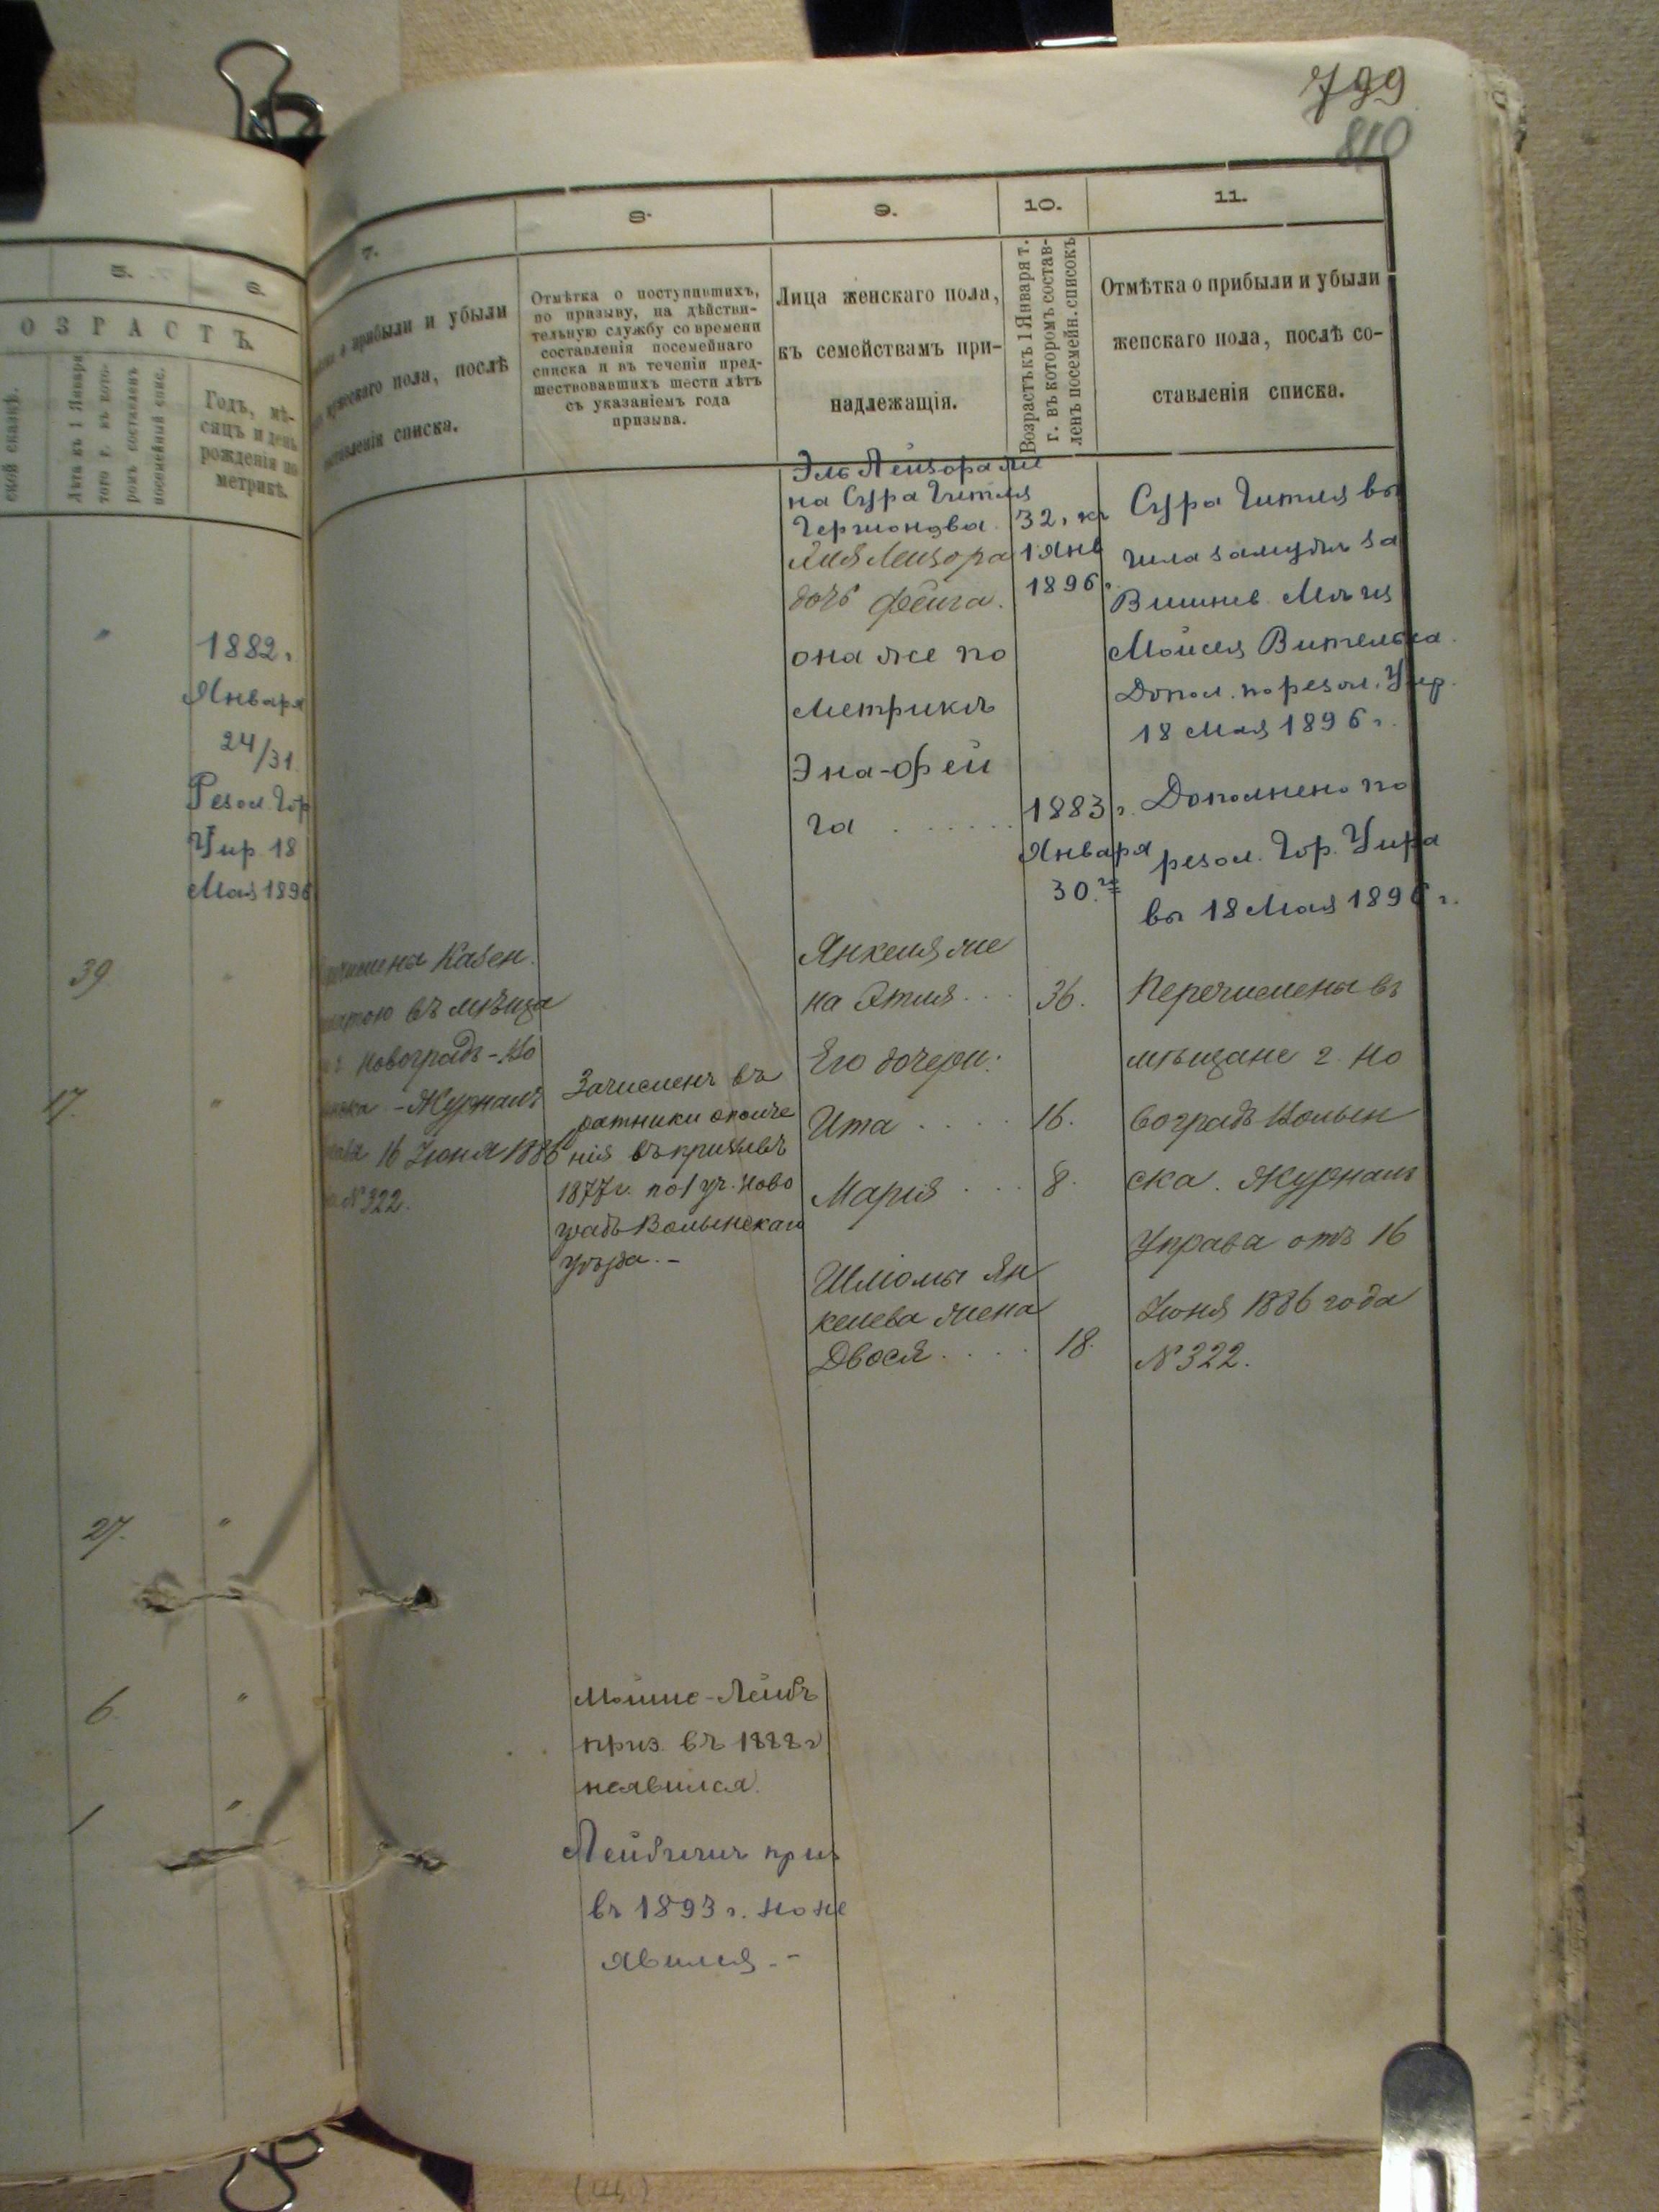 799
810
5.
6.
7.
8.
9.
10.
11.
ОЗРАСТЪ.
ской сказкѣ.
Лѣта къ 1 Января
того г. въ кото-
ромъ составленъ
посемейный спис.
Годъ, мѣ-
сяцъ и день
рожденія по
метрикѣ.
о прибыли и убыли
мужескаго пола, послѣ
составленія списка.
Отмѣтка о поступившихъ,
по призыву, на дѣйстви-
тельную службу со времени
составленія посемейнаго
списка и въ теченіи пред-
шествовавшихъ шести лѣтъ
съ указаніемъ года
призыва.
Лица женскаго пола,
къ семействамъ при-
надлежащія.
Возрастъ къ 1 Января т.
г. въ которомъ состав-
ленъ посемейн. списокъ
Отмѣтка о прибыли и убыли
женскаго пола, послѣ со-
ставленія списка.
1882.
Января
24/31
Резол. Гор
Упр 18
Мая 1896
39
17.
27.
6.
1
Казен.
въ мѣща
Новоградъ-Во
Журналъ
16 Іюня 1886
№ 322.
Зачисленъ въ
ратники ополче
нія въ призывъ
1877 г. по 1 уч. Ново
градъ Волынскаго
уѣзда. -
Мойше-Лейбъ
приз. въ 1888 г
неявился.
Лейбъ приз
въ 1893 г. но не
явился. -
Лейзора же
на Сура Гитля
Лейзора
дочь Фейга.
она же по
метрикѣ
Эна-Фей
га . . . . . .
Янкеля же
на Этля . . .
Его дочери:
Ита . . . .
Марія . . .
Шліомы Ян
келева жена
Двося . . . .
32, къ
1 Янв
1896 г.
1883 г.
Января
30.го
36.
16.
8.
18.
Сура Гитля вы
шла замужъ за
Мойсея
Допол. по резол. Упр.
18 Мая 1896 г.
Дополнено по
резол. Гор. Упра
вы 18 Мая 1896 г.
Перечислены въ
мѣщане г. Но
воградъ Волын
ска. Журналъ
Управа отъ 16
Іюня 1886 года
№ 322.